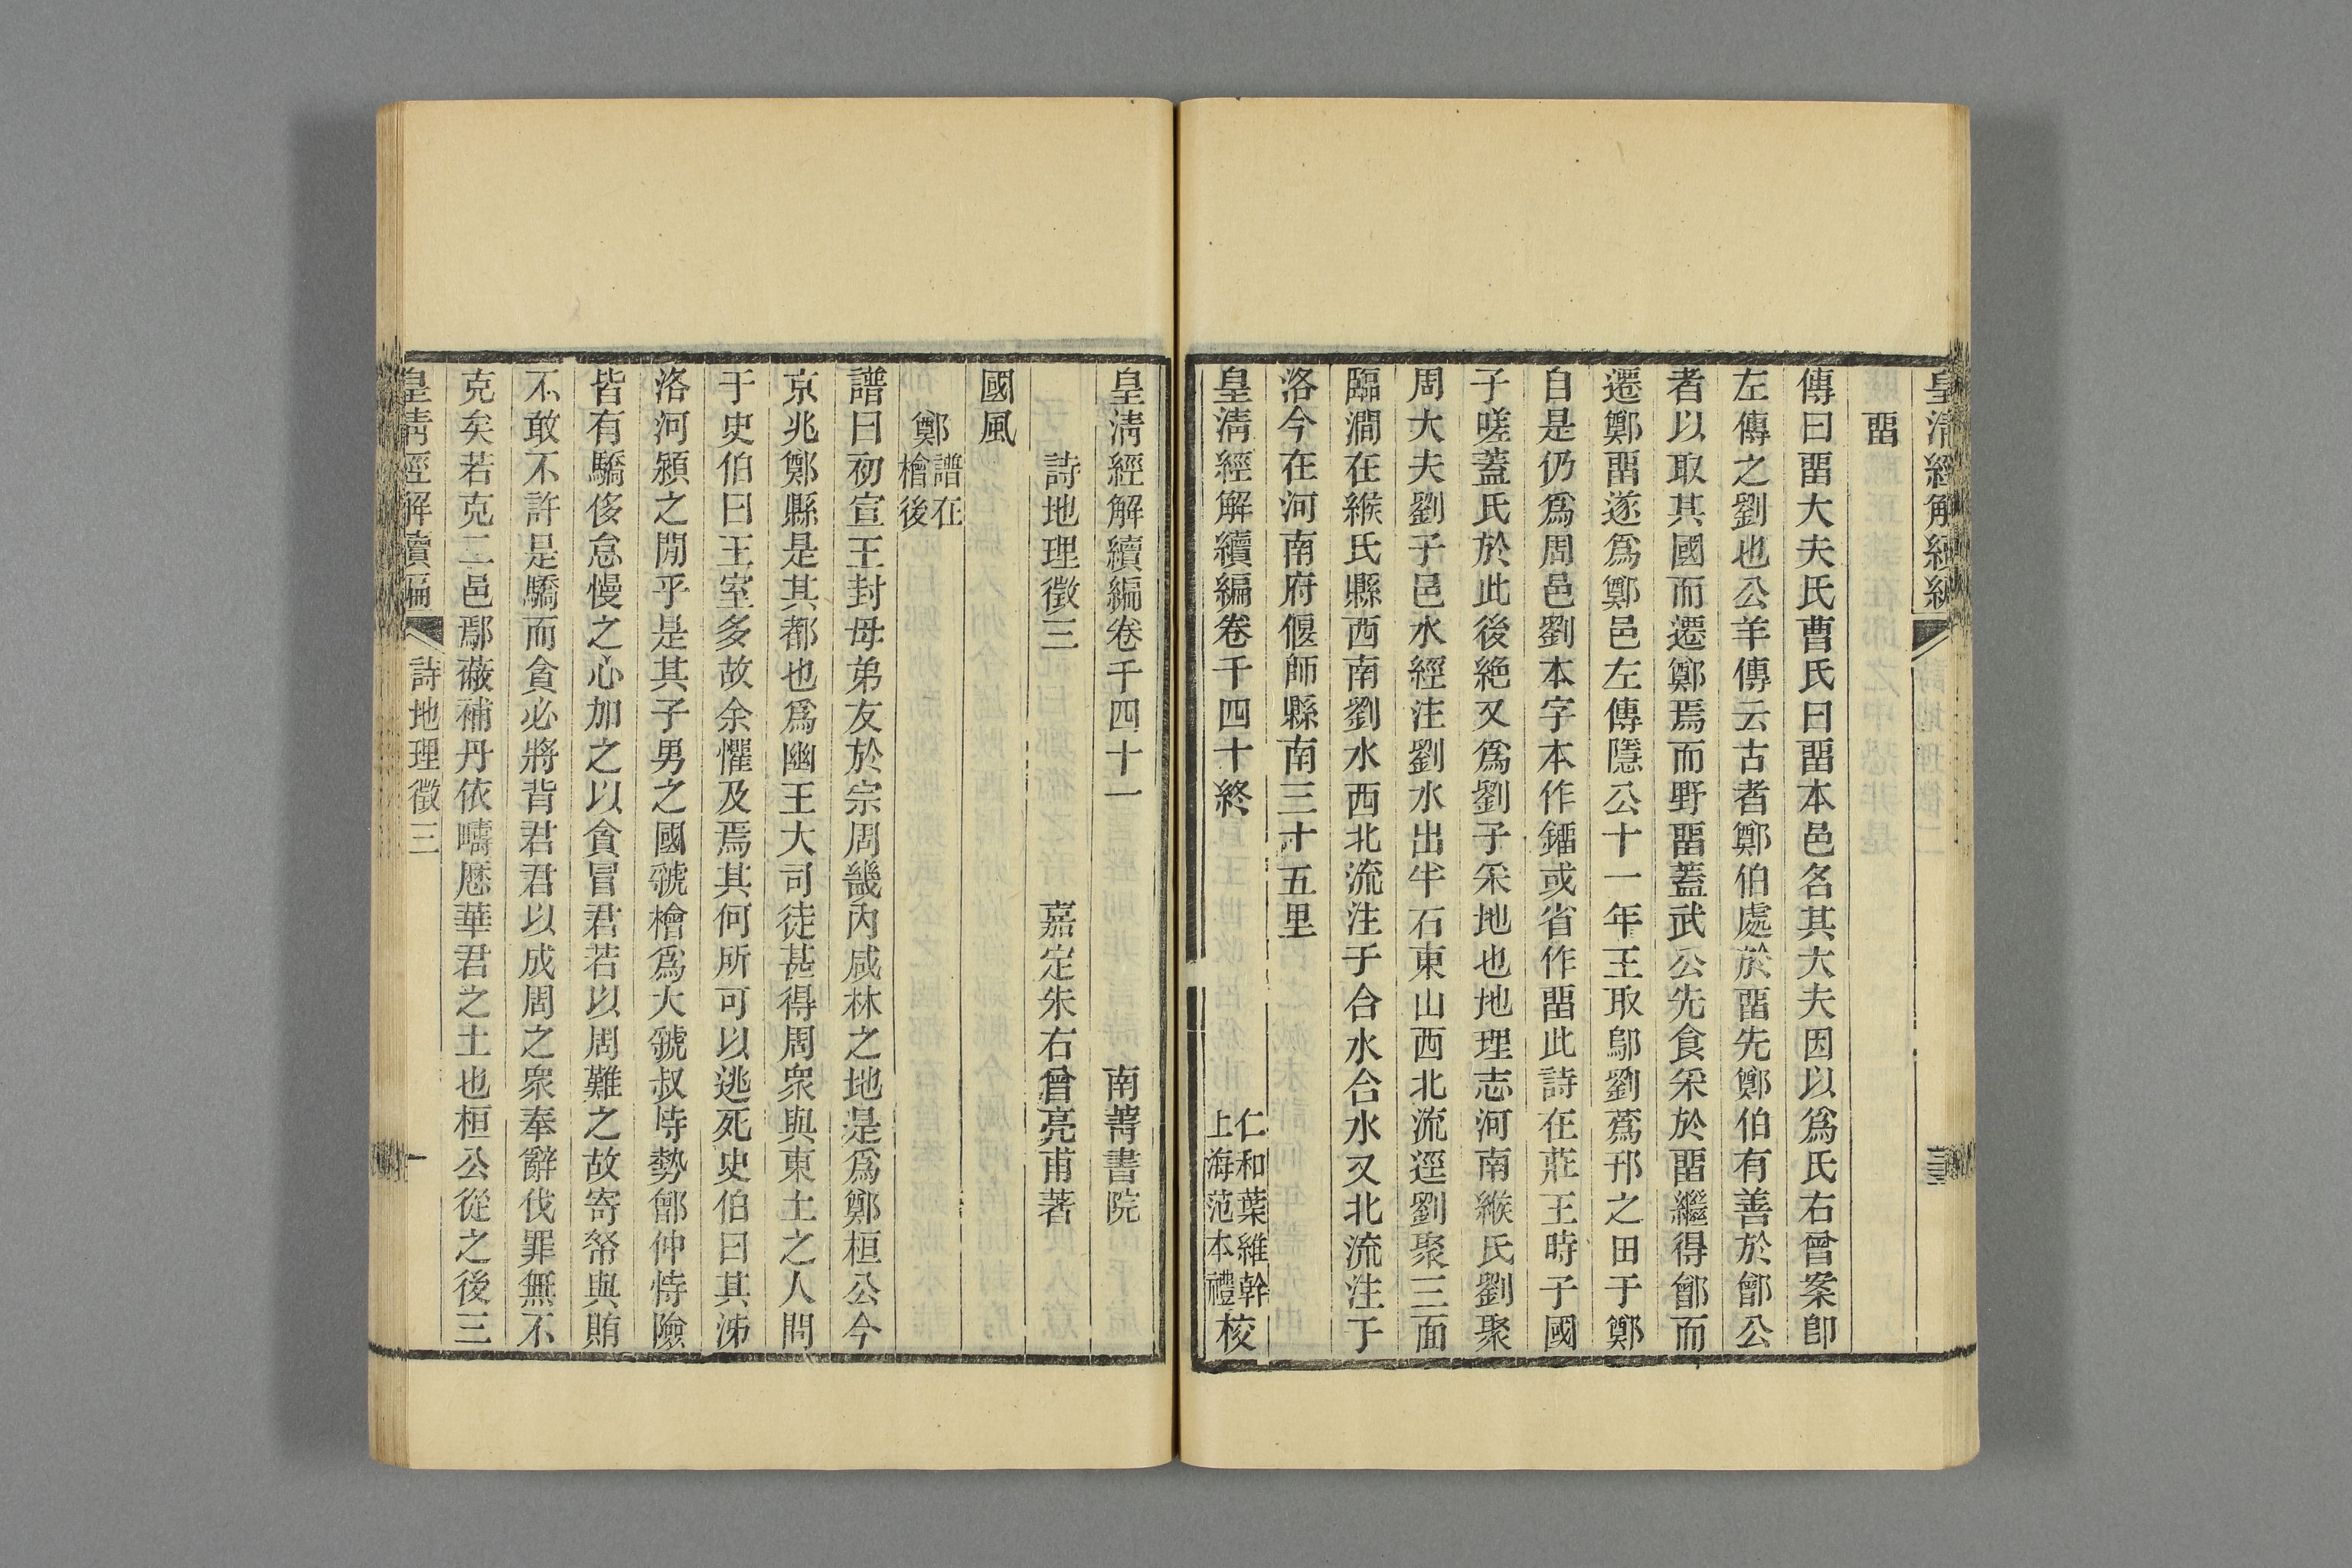 皇淸經解續編
詩地理徵二
畱
傳曰畱大夫氏曹氏曰畱本邑名其大夫因以爲氏右曾案卽
左傳之劉也公羊傳云古者鄭伯處於畱先鄭伯有善於鄶公
者以取其國而遷鄭焉而野畱蓋武公先食采於畱繼得鄶而
遷鄭畱遂爲鄭邑左傳隱公十一年王取鄔劉蔿邘之田于鄭
自是仍爲周邑劉本字本作鎦或省作畱此詩在莊王時子國
子嗟蓋氏於此後絶又爲劉子采地也地理志河南緱氏劉聚
周大夫劉子邑水經注劉水出半石東山西北流逕劉聚三面
臨澗在緱氏縣西南劉水西北流注于合水合水又北流注于
洛今在河南府偃師縣南三十五里
皇淸經解續編卷千四十終
仁和葉維幹
上海范本禮
校
皇淸經解續編卷千四十一
南菁書院
詩地理徵三
嘉定朱右曾亮甫著
國風
鄭 譜在
檜後
譜曰初宣王封母弟友於宗周畿內咸林之地是爲鄭桓公今
京兆鄭縣是其都也爲幽王大司徒甚得周衆與東土之人問
于史伯曰王室多故余懼及焉其何所可以逃死史伯曰其泲
洛河潁之閒乎是其子男之國虢檜爲大虢叔恃勢鄶仲恃險
皆有驕侈怠慢之心加之以貪冒君若以周難之故寄帑與賄
不敢不許是驕而貪必將背君君以成周之衆奉辭伐罪無不
克矣若克二邑鄢蔽補丹依疇歷華君之土也桓公從之後三
皇淸經解續編
詩地理徵三
一